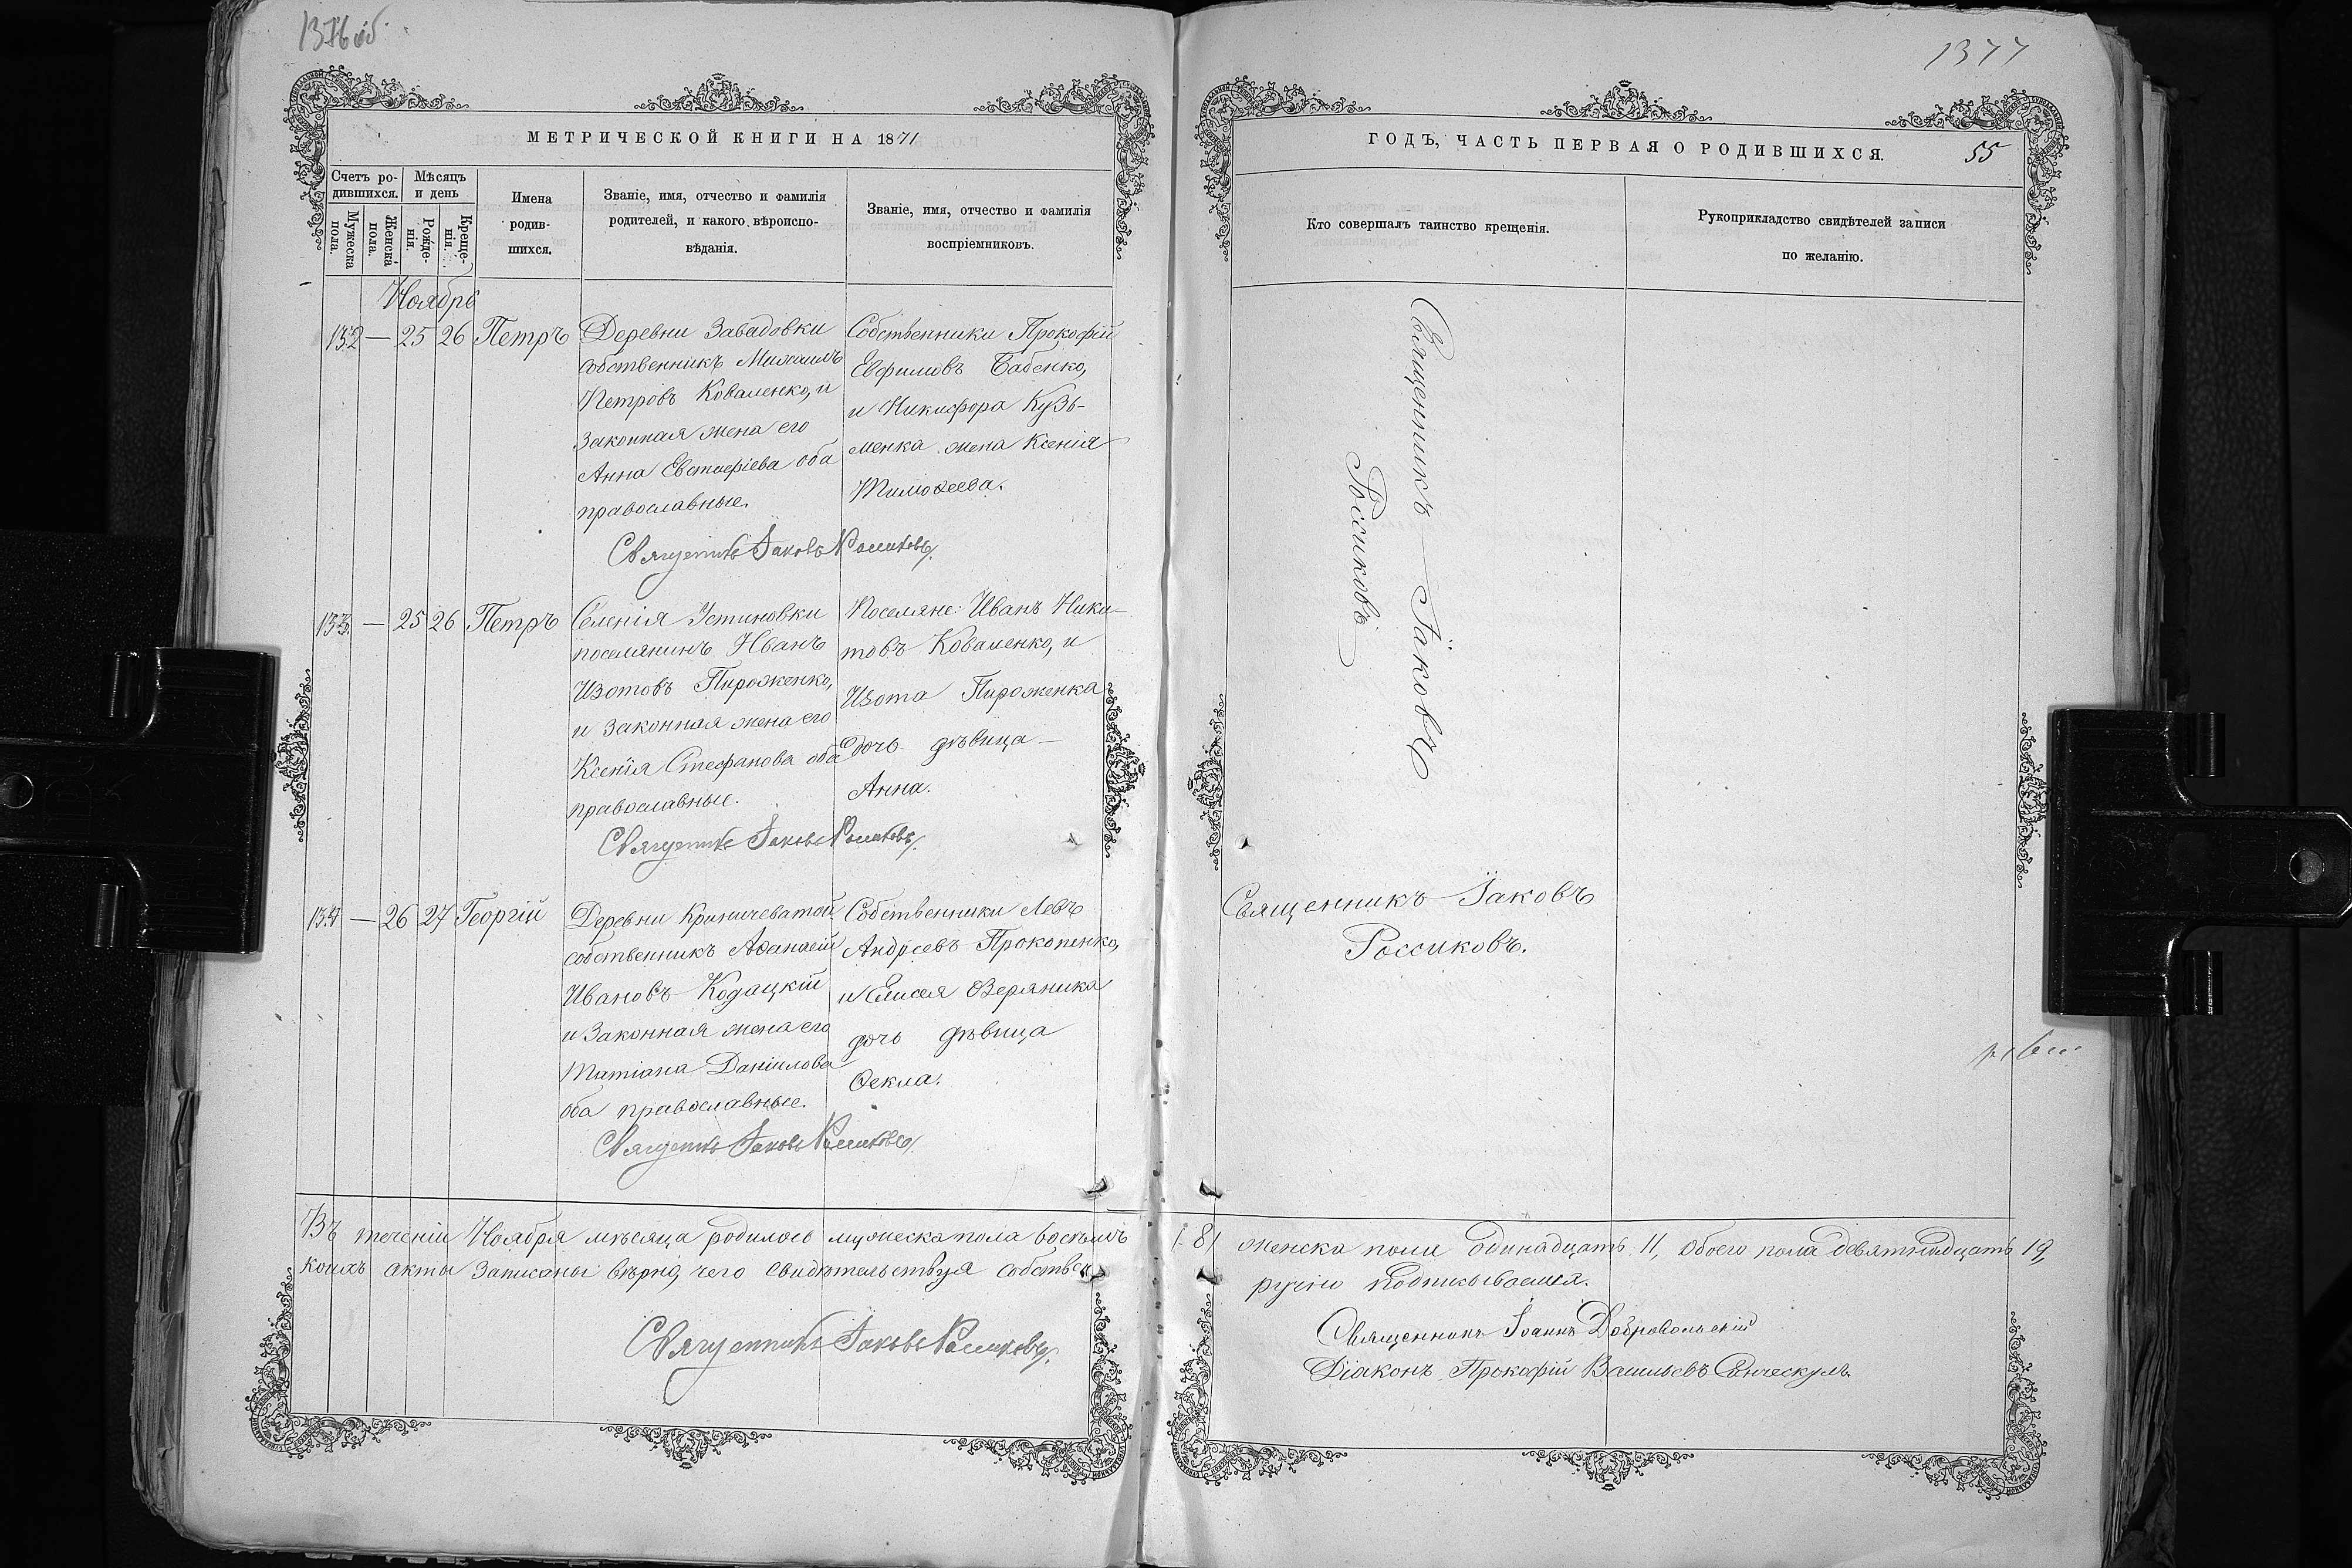 1376 об
МЕТРИЧЕСКОЙ КНИГИ НА 1871
Счетъ ро-
дившихся.
Мужеска
пола.
Женска
пола.
Мѣсяцъ
и день
Рожде-
нія.
Креще-
нія.
Имена
родив-
шихся.
Званіе, имя, отчество и фамилія
родителей, и какого вѣроиспо-
вѣданія.
Званіе, имя, отчество и фамилія
воспріемниковъ.
Ноябрь
132 — 25 26 Петръ
Деревни Завадовки
собственникъ Михаилъ
Петровъ Коваленко, и
законная жена его
Анна Евстафіева оба
православные.
Собственники Прокофій
Евфимовъ Бабенко,
и Никифора Кузь-
менка жена Ксенія
Тимоѳеева.
Священникъ Іаковъ Россиковъ.
133. — 25 26 Петръ
Селенія Устиновки
поселянинъ Иванъ
Изотовъ Пироженко,
и законная жена его
Ксенія Стефанова оба
православные.
Поселяне: Иванъ Ники-
товъ Коваленко, и
Изота Пироженка
дочь дѣвица
Анна.
Священникъ Іаковъ Россиковъ.
134 — 26 27 Георгій
Деревни Криничеватой
собственникъ Аѳанасій
Ивановъ Кодацкій
и законная жена его
Татіана Даніилова
оба православные.
Собственники Левъ
Андреевъ Прокопенко,
и Елисея Озеряника
дочь дѣвица
Ѳекла.
Священникъ Іаковъ Россиковъ.
Въ теченіи Ноября мѣсяца родилось мужеска пола восемь
коихъ акты записаны вѣрно, чего свидѣтельствуя собствен
Священникъ Іаковъ Россиковъ.
1377
ГОДЪ, ЧАСТЬ ПЕРВАЯ О РОДИВШИХСЯ. 55
Кто совершалъ таинство крещенія.
Рукоприкладство свидѣтелей записи
по желанію.
Священникъ Іаковъ
Россиковъ
Священникъ Іаковъ
Россиковъ.
8, женска пола одинадцать 11, обоего пола девятнадцать 19,
ручно подписываемся.
Священникъ Іоаннъ Добровольскій
Діаконъ Прокофій Васильевъ